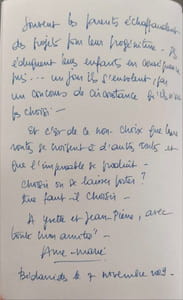 Souvent les parents échafaudent
des projets pour leur progéniture. Ils
éduquent leurs enfants en conséquence
puis... un jour ils s'envolent par
un concours de circonstance qu'ils n'ont
pas choisi.
Et c'est de ce non-choix que leur
route se heurte à d'autres routes et
que l'impensable se produit.
Choisir ou se laisser porter ?
Que faut-il choisir...
A Yvette et Jean-Pierre, avec
toute mon amitié.
Anne-Marie
Bédarrides le 7 novembre 2009.